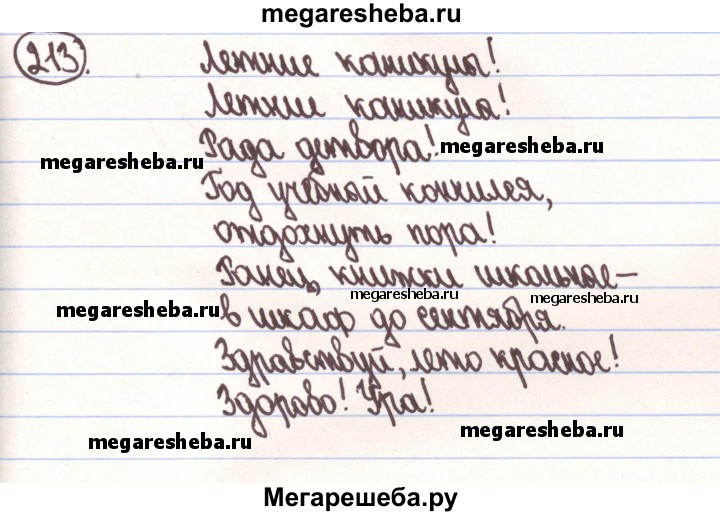 megaresheba.ru
213.
Летние каникулы!
Летние каникулы!
megaresheba.ru
Рада детвора!
megaresheba.ru
Год учебный кончился,
отдохнуть пора!
Ранец, книжки школьные –
megaresheba.ru
megaresheba.ru
megaresheba.ru
в шкаф до сентября.
Здравствуй, лето красное!
Здорово! Ура!
megaresheba.ru
megaresheba.ru
Мегарешеба.ру